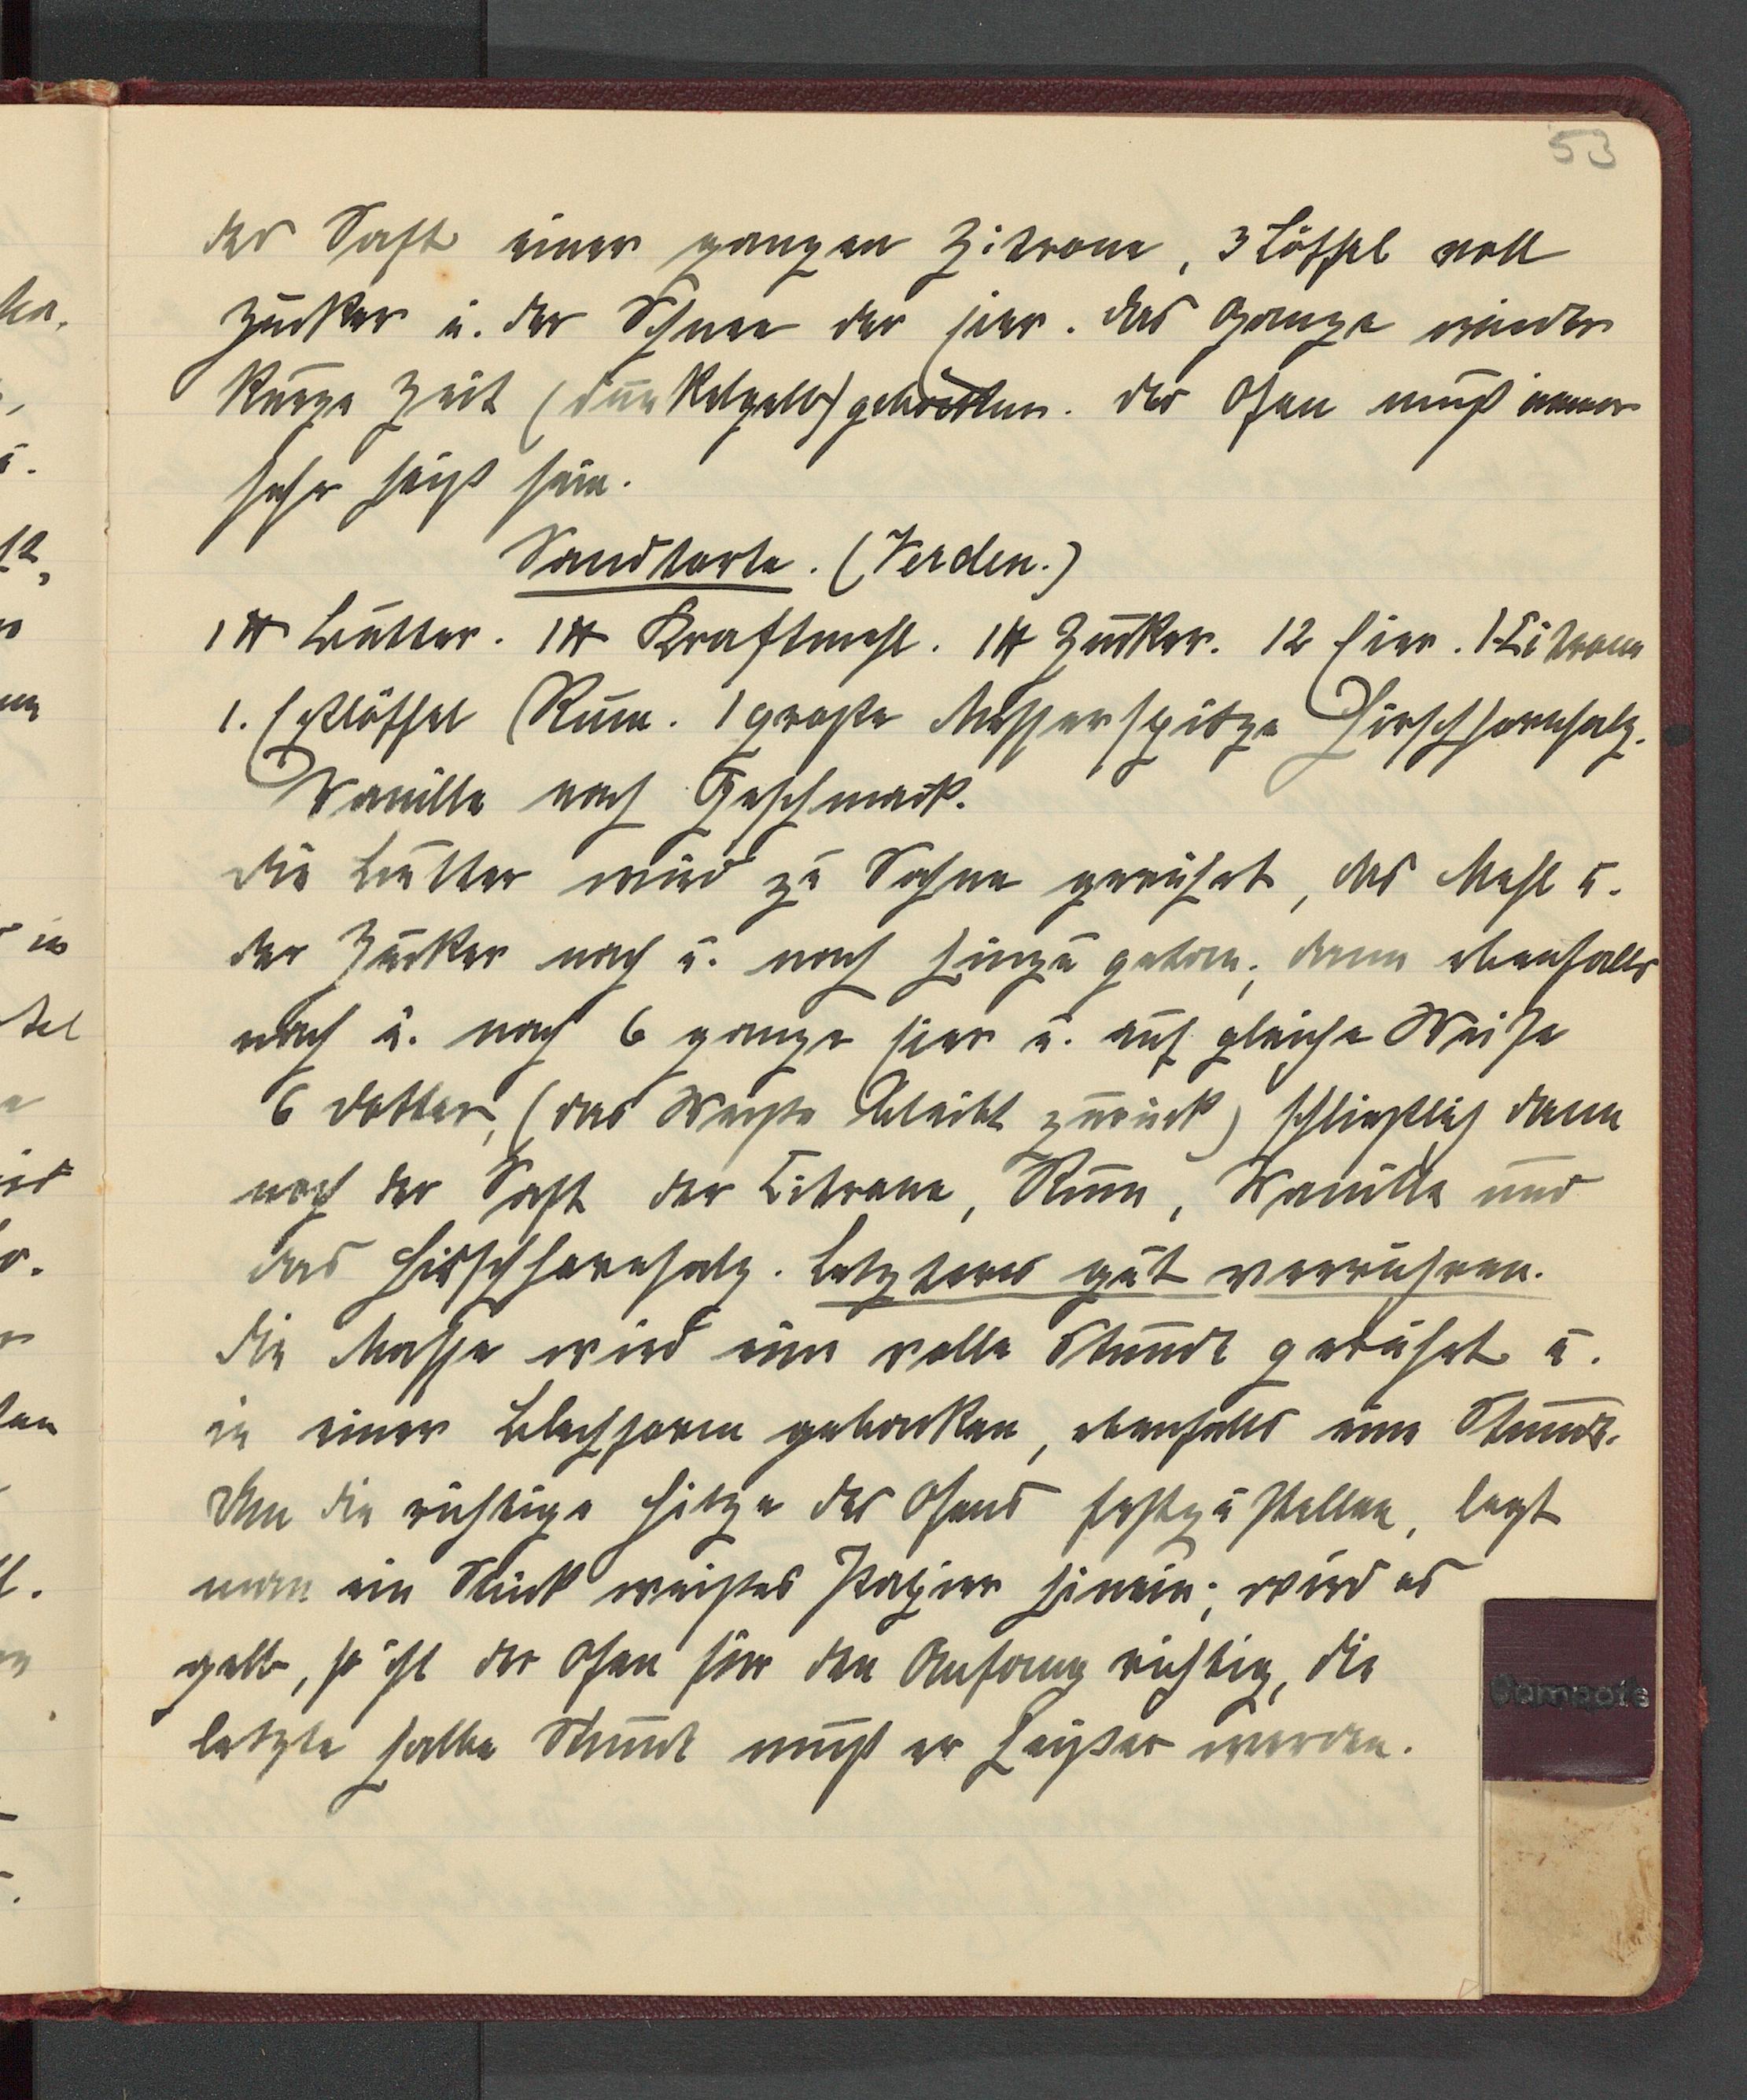 53
der Saft einer ganzen Zitrone, 3 Löffel voll
Zucker u. der Schnee der Eier. Das Ganze wieder
kurze Zeit (dunkelgelb) gebacken. Der Ofen muß immer
sehr heiß sein.
Sandtorte. (Verden.)
1 ℔ Butter. 1 ℔ Kraftmehl. 1 ℔ Zucker. 12 Eier. 1 Citrone
1. Eßlöffel Rum. 1 große Messerspitze Hirschhornsalz.
Vanille nach Geschmack.
Die Butter wird zu Sahne gerührt, das Mehl u.
der Zucker nach u. nach hinzu getan; dann ebenfalls
nach u. nach 6 ganze Eier u. auf gleiche Weise
6 Dotter, (das Weiße bleibt zurück) schließlich dann
noch der Saft der Citrone, Rum, Vanille und
das Hirschhornsalz. Letzteres gut verrühren.
Die Masse wird eine volle Stunde gerührt u.
in einer Blechform gebacken, ebenfalls eine Stunde.
Um die richtige Hitze des Ofens festzustellen, legt
man ein Stück weißes Papier hinein; wird es
gelb, so ist der Ofen für den Anfang richtig, die
letzte halbe Stunde muß er heißer werden.
Compots